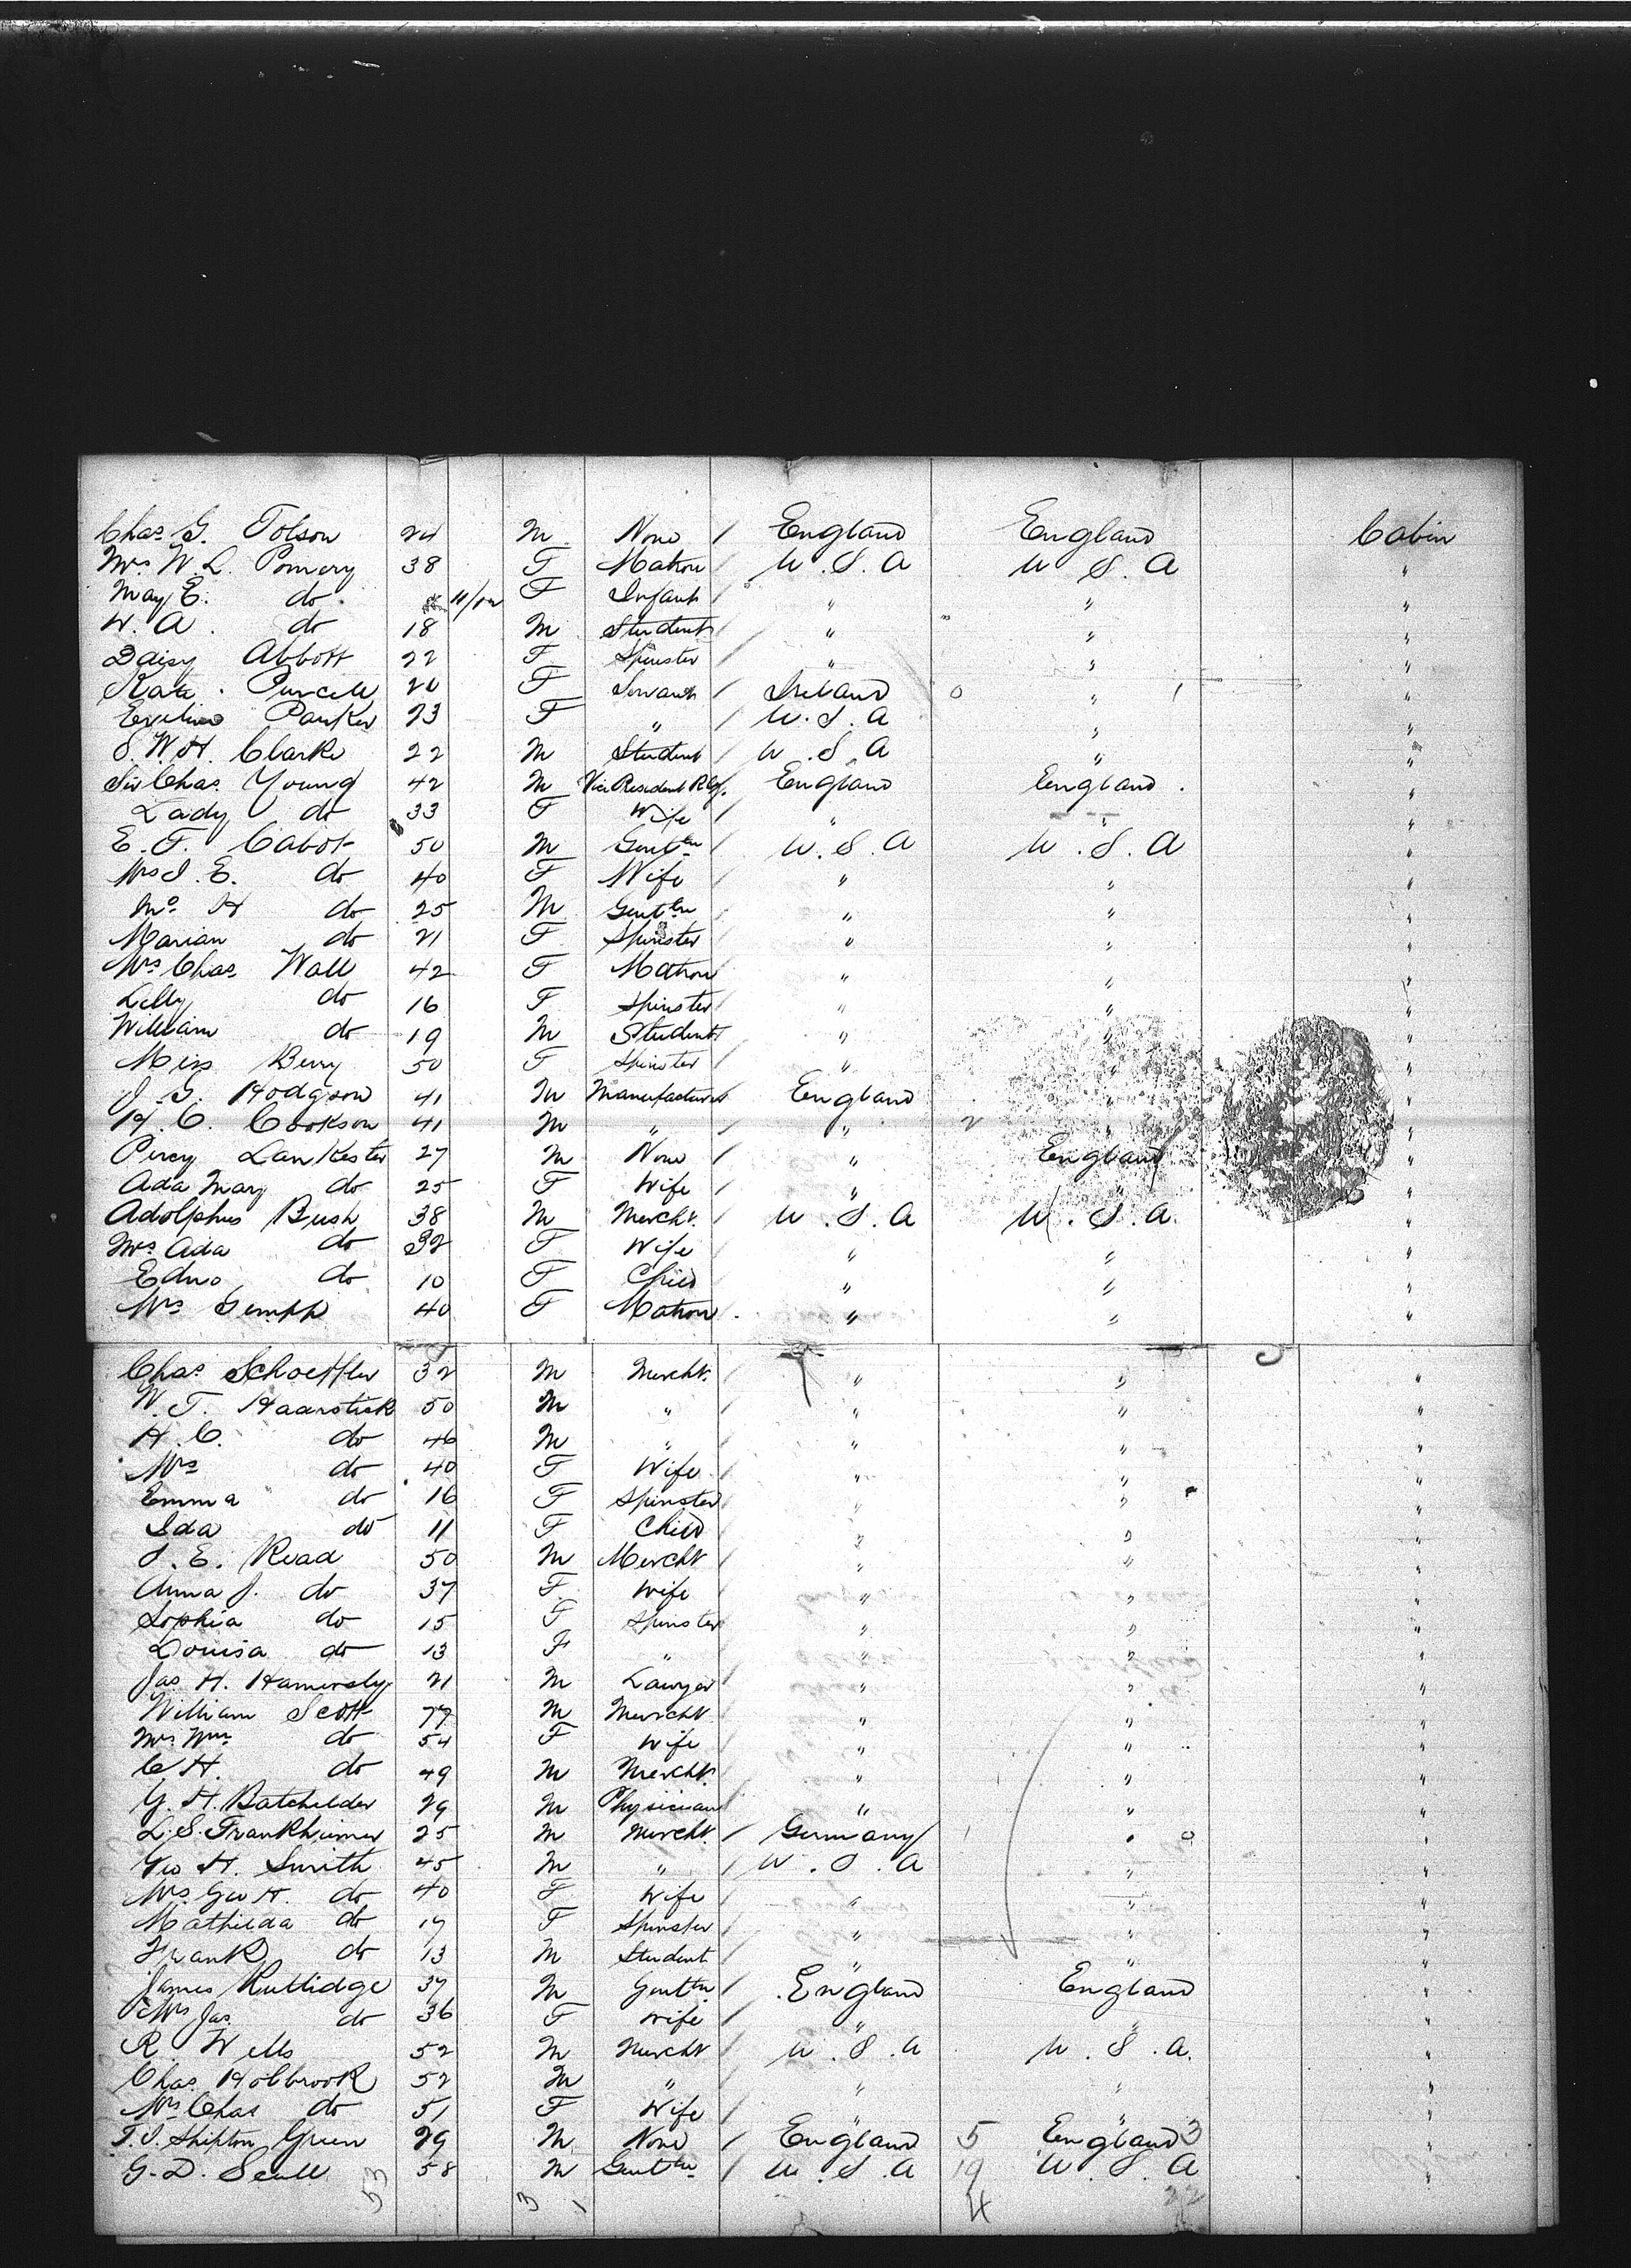 Chas. G. Tolson 24 M None / England England Cabin
Mrs W. L. Pomery 38 F Matron / U. S. A U S. A "
May E. do 11/12 F Infant / " " "
W. A. do 18 M Student / " " "
Daisy Abbott 22 F Spinster / " " "
Kate Purcell 20 F Servant / Ireland 0 " 1 "
Eveline Parker 23 F " / U. S. A " "
S. W. H. Clarke 22 M Student / U. S. A " "
Sir Chas. Young 42 M Vice President / England England "
Lady do 33 F Wife / " " "
E. F. Cabot 50 M Gentln / U. S. A U. S. A "
Mrs J. E. do 40 F Wife / " " "
H do 25 M Gentln / " " "
Marian do 21 F Spinster / " " "
Mrs Chas. Wall 42 F Matron / " " "
Lilly do 16 F Spinster / " " "
William do 19 M Student / " " "
Miss Berry 50 F Spinster / " " "
J. G. Hodgson 41 M Manufacturer / England " "
H. C. Cookson 41 M " / " 2 " "
Percy Lankester 27 M None / " England "
Ada Mary do 25 F Wife / " " "
Adolphus Bush 38 M Mercht. / U. S. A U. S. A. "
Mrs Ada do 32 F Wife / " " "
Edna do 10 F Child / " " "
Mrs 40 F Matron " " "
Chas. Schoeffler 32 M Mercht. / " " "
W. T. Haarstick 50 M " / " " "
H. C. do 46 M " / " " "
Mrs do 40 F Wife / " " "
Emma do 16 F Spinster / " " "
Ida do 11 F Child / " " "
J. E. Read 50 M Mercht / " " "
Anna J. do 37 F Wife / " " "
Sophia do 15 F Spinster / " " "
Louisa do 13 F " / " " "
Jas. H. Hamersly 21 M Lawyer / " " "
William Scott 77 M Mercht / " " "
Mrs Wm. do 54 F Wife / " " "
C H. do 49 M Mercht. / " " "
G. H. Batchelder 29 M Physician / " " "
L. S. Frankheimer 25 M Mercht. / Germany 1 " 0 "
Geo H. Smith 45 M " / U. S. A " "
Mrs. Geo H. do 40 F Wife / " " "
Mathilda do 17 F Spinster / " " "
Frank do 13 M Student / " " "
James Ruttidge 37 M Gentln / England England "
Mrs Jas. do 36 F Wife / " " "
R. Wells 52 M Mercht / U. S. A U. S. A. "
Chas. Holbrook 52 M " / " " "
Mrs Chas do 51 F Wife / " " "
T. S. Shipton Green 29 M None / England 5 England 3 "
G. D. Scull 58 M Gentln / U. S. A 19 U. S. A "
53 3 1 4 22